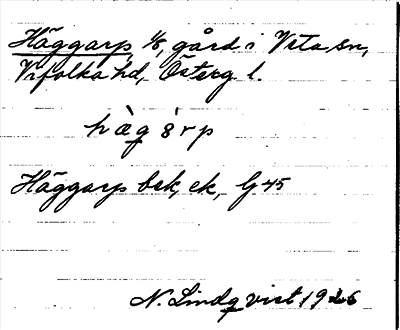 Häggarp 1/8, gård i Veta sn,
Vifolka hd, Österg l.
hàgárp
Häggarp bek, ek, G 45
N. Lindqvist 1926